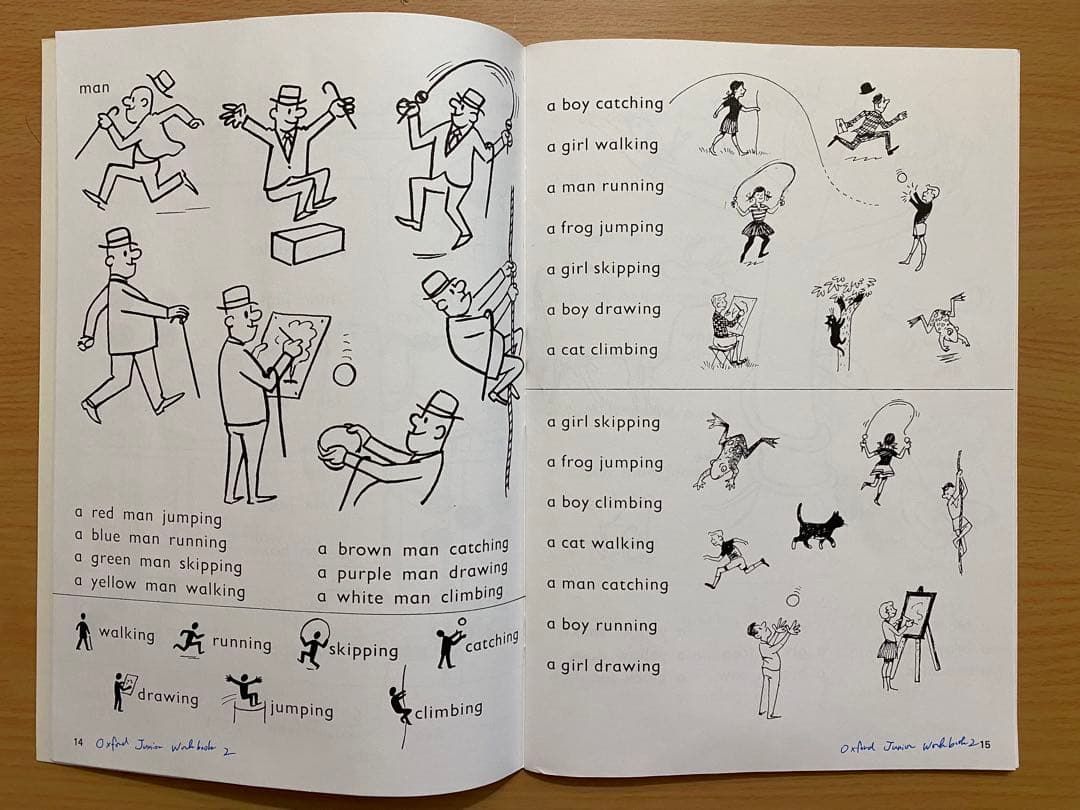 man
a red man jumping
a blue man running
a green man skipping
a yellow man walking
a brown man catching
a purple man drawing
a white man climbing
walking
running
skipping
catching
drawing
jumping
climbing
14
Oxford Junior Workbook 2
a boy catching
a girl walking
a man running
a frog jumping
a girl skipping
a boy drawing
a cat climbing
a girl skipping
a frog jumping
a boy climbing
a cat walking
a man catching
a boy running
a girl drawing
Oxford Junior Workbook 2
15